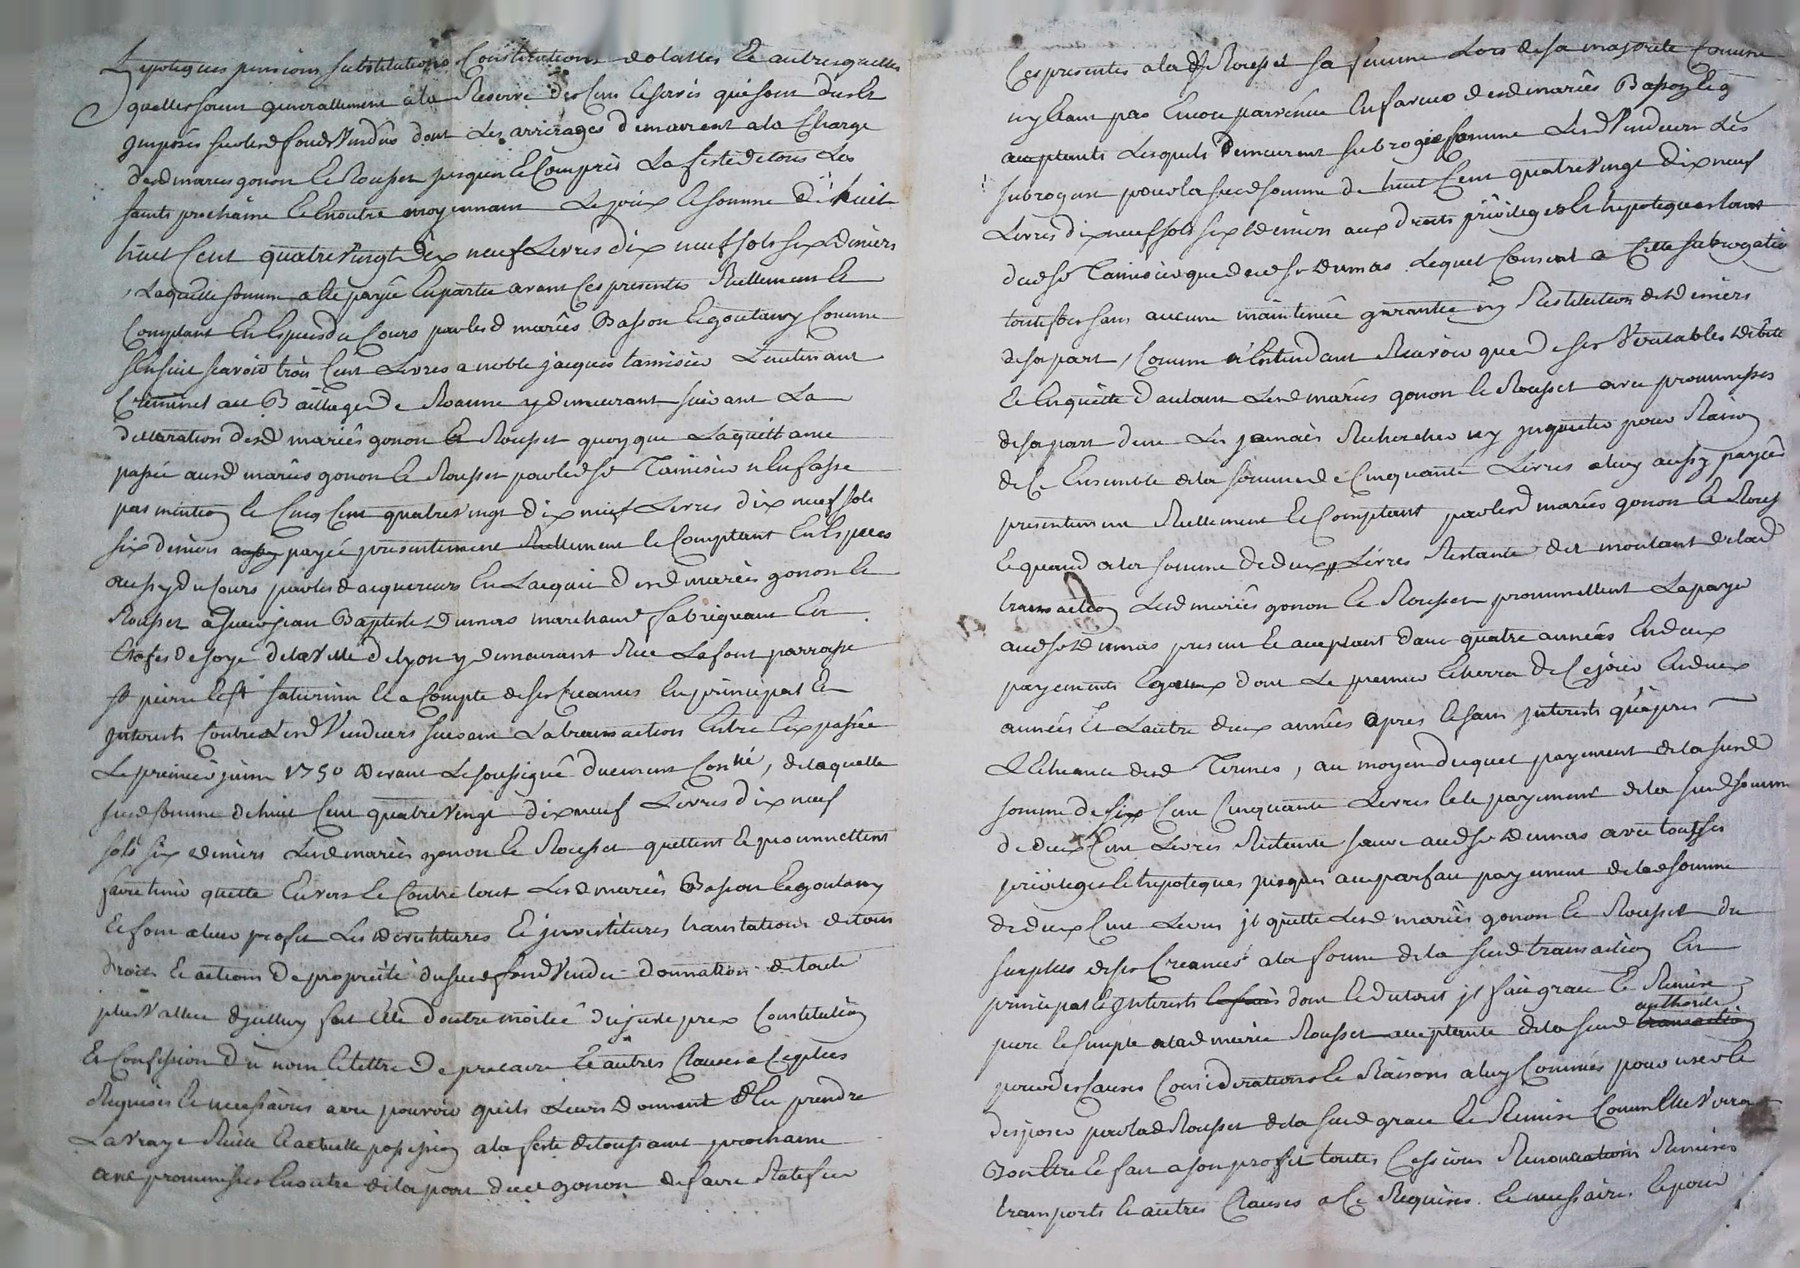 hypoteques pensions substitutions Constitutions dotalles et autres quelles
quelles soient generallement a la Reserve des Cens et servis qui sont dus et
jmposés sur lesd fonds vendus dont Les arrerages demeurent a la Charge
desd mariés gonon et Rousset jusques et Compris La feste de tous Les
saints prochaine et en outre moyennant Le prix et somme de huit
huit Cent quatre vingt dix neuf Livres dix neuf sols six deniers
Laquelle somme a été payée en partie avant Ces presentes Reellement et
Comptant en especes du Cours par lesd mariés Basson et goutany Comme
s'ensuit scavoir trois Cent Livres a noble jacques tamisier Lieutenant
Criminel au Bailliage de Roanne y demeurant suivant La
declaration desd mariés gonon et Rousset quoyque La quittance
passée ausd mariés gonon et Rousset par led sr Tamisier n'en fasse
pas mention et Cinq Cent quatre vingt dix neuf Livres dix neuf sols
six deniers aussy payée presentement Reellement et Comptant en especes
aussy du Cours par lesd acquereurs en L'acquit desd mariés gonon et
Rousset a sieur jean Baptiste Dumas marchand fabriquant en
etofes de soye de la ville de Lyon y demeurant Rue Lafont parroisse
st pierre et st saturnin et a Compte de ses Creances en principal et
jnterests Contre Lesd vendeurs suivant La transaction entre eux passée
Le premier juin 1750 devant Le soussigné duement Conllé, de laquelle
susd somme de huit Cent quatre vingt dix neuf Livres dix neuf
sols six deniers Lesd mariés gonon et Rousset quittent et promettent
faire tenir quitte envers et Contre tous Lesd mariés Basson et goutany
et font a leur profit Les devestitures et jnvestitures translations de tous
droits et actions de propriété du susd fond vendu donnation de toute
plus vallue
Et Confession du nom et tittre de precaire et autres Clauses
Requises et necessaires avec pouvoir qu'ils Leurs donnent d'en prendre
La vraye Reelle et actuelle possession a la feste de toussaint prochaine
avec promesses en outre de la part dud gonon de faire Ratefier
Ces presentes a lad Rousset sa femme Lors de sa majorité Comme
ny étant pas encore parvenue en faveur desd mariés Basson et g
acceptants Lesquels demeurent subrogés Comme Lesd vendeurs Les
subrogent pour la susd somme de huit Cent quatre vingt dix neuf
Livres dix neuf sols six deniers aux droits privileges et hypoteques tant
dud sr Tamisier que dud sr Dumas Lequel Consent a Cette subrogation
toutesfois sans aucune maintenüe garantie ny Restitution de deniers
de sa part, Comme n'entendant Recevoir que de ses veritables debiteurs
et en quitte d'autant Lesd mariés gonon et Rousset avec promesses
de sa part de ne Les jamais Rechercher ny jnquieter pour Raison
de Ce Ensemble de la somme de Cinquante Livres a luy aussy payée
presentement Reellement et Comptant par lesd mariés gonon et Rouss
et quand a la somme de deux Livres Restante du montant de lad
transaction Lesd mariés gonon et Rousset promettent La payer
aud sr Dumas present et acceptant dans quatre années en deux
payements egaux dont Le premier echerra de Ce jour en deux
années et L'autre deux années apres et sans jnterests qu'apres
L'echeance desd Termes, au moyen duquel payement de la susd
somme de six Cent Cinquante Livres et le payement de la susd somme
de deux Cent Livres Restante sauve aud sr Dumas avec tous ses
privileges et hypoteques jusques au parfait payement de lad somme
de deux Cent Livres jl quitte Lesd mariés gonon et Rousset du
surplus de ses Creances a la forme de la susd transaction en
principal et jnterests et frais dont et du tout jl fait grace et Remise
pure et simple a lad mariée Rousset acceptante de la susd transaction
authorité
pour des Causes Considerations et Raisons a luy Connües pour user et
disposer par lad Rousset de la susd grace et Remise Comm'elle verra
Bon etre et fait a son profit toutes Cessions Renonciations Remises
transports et autres Clauses a Ce Requises et necessaires et pour